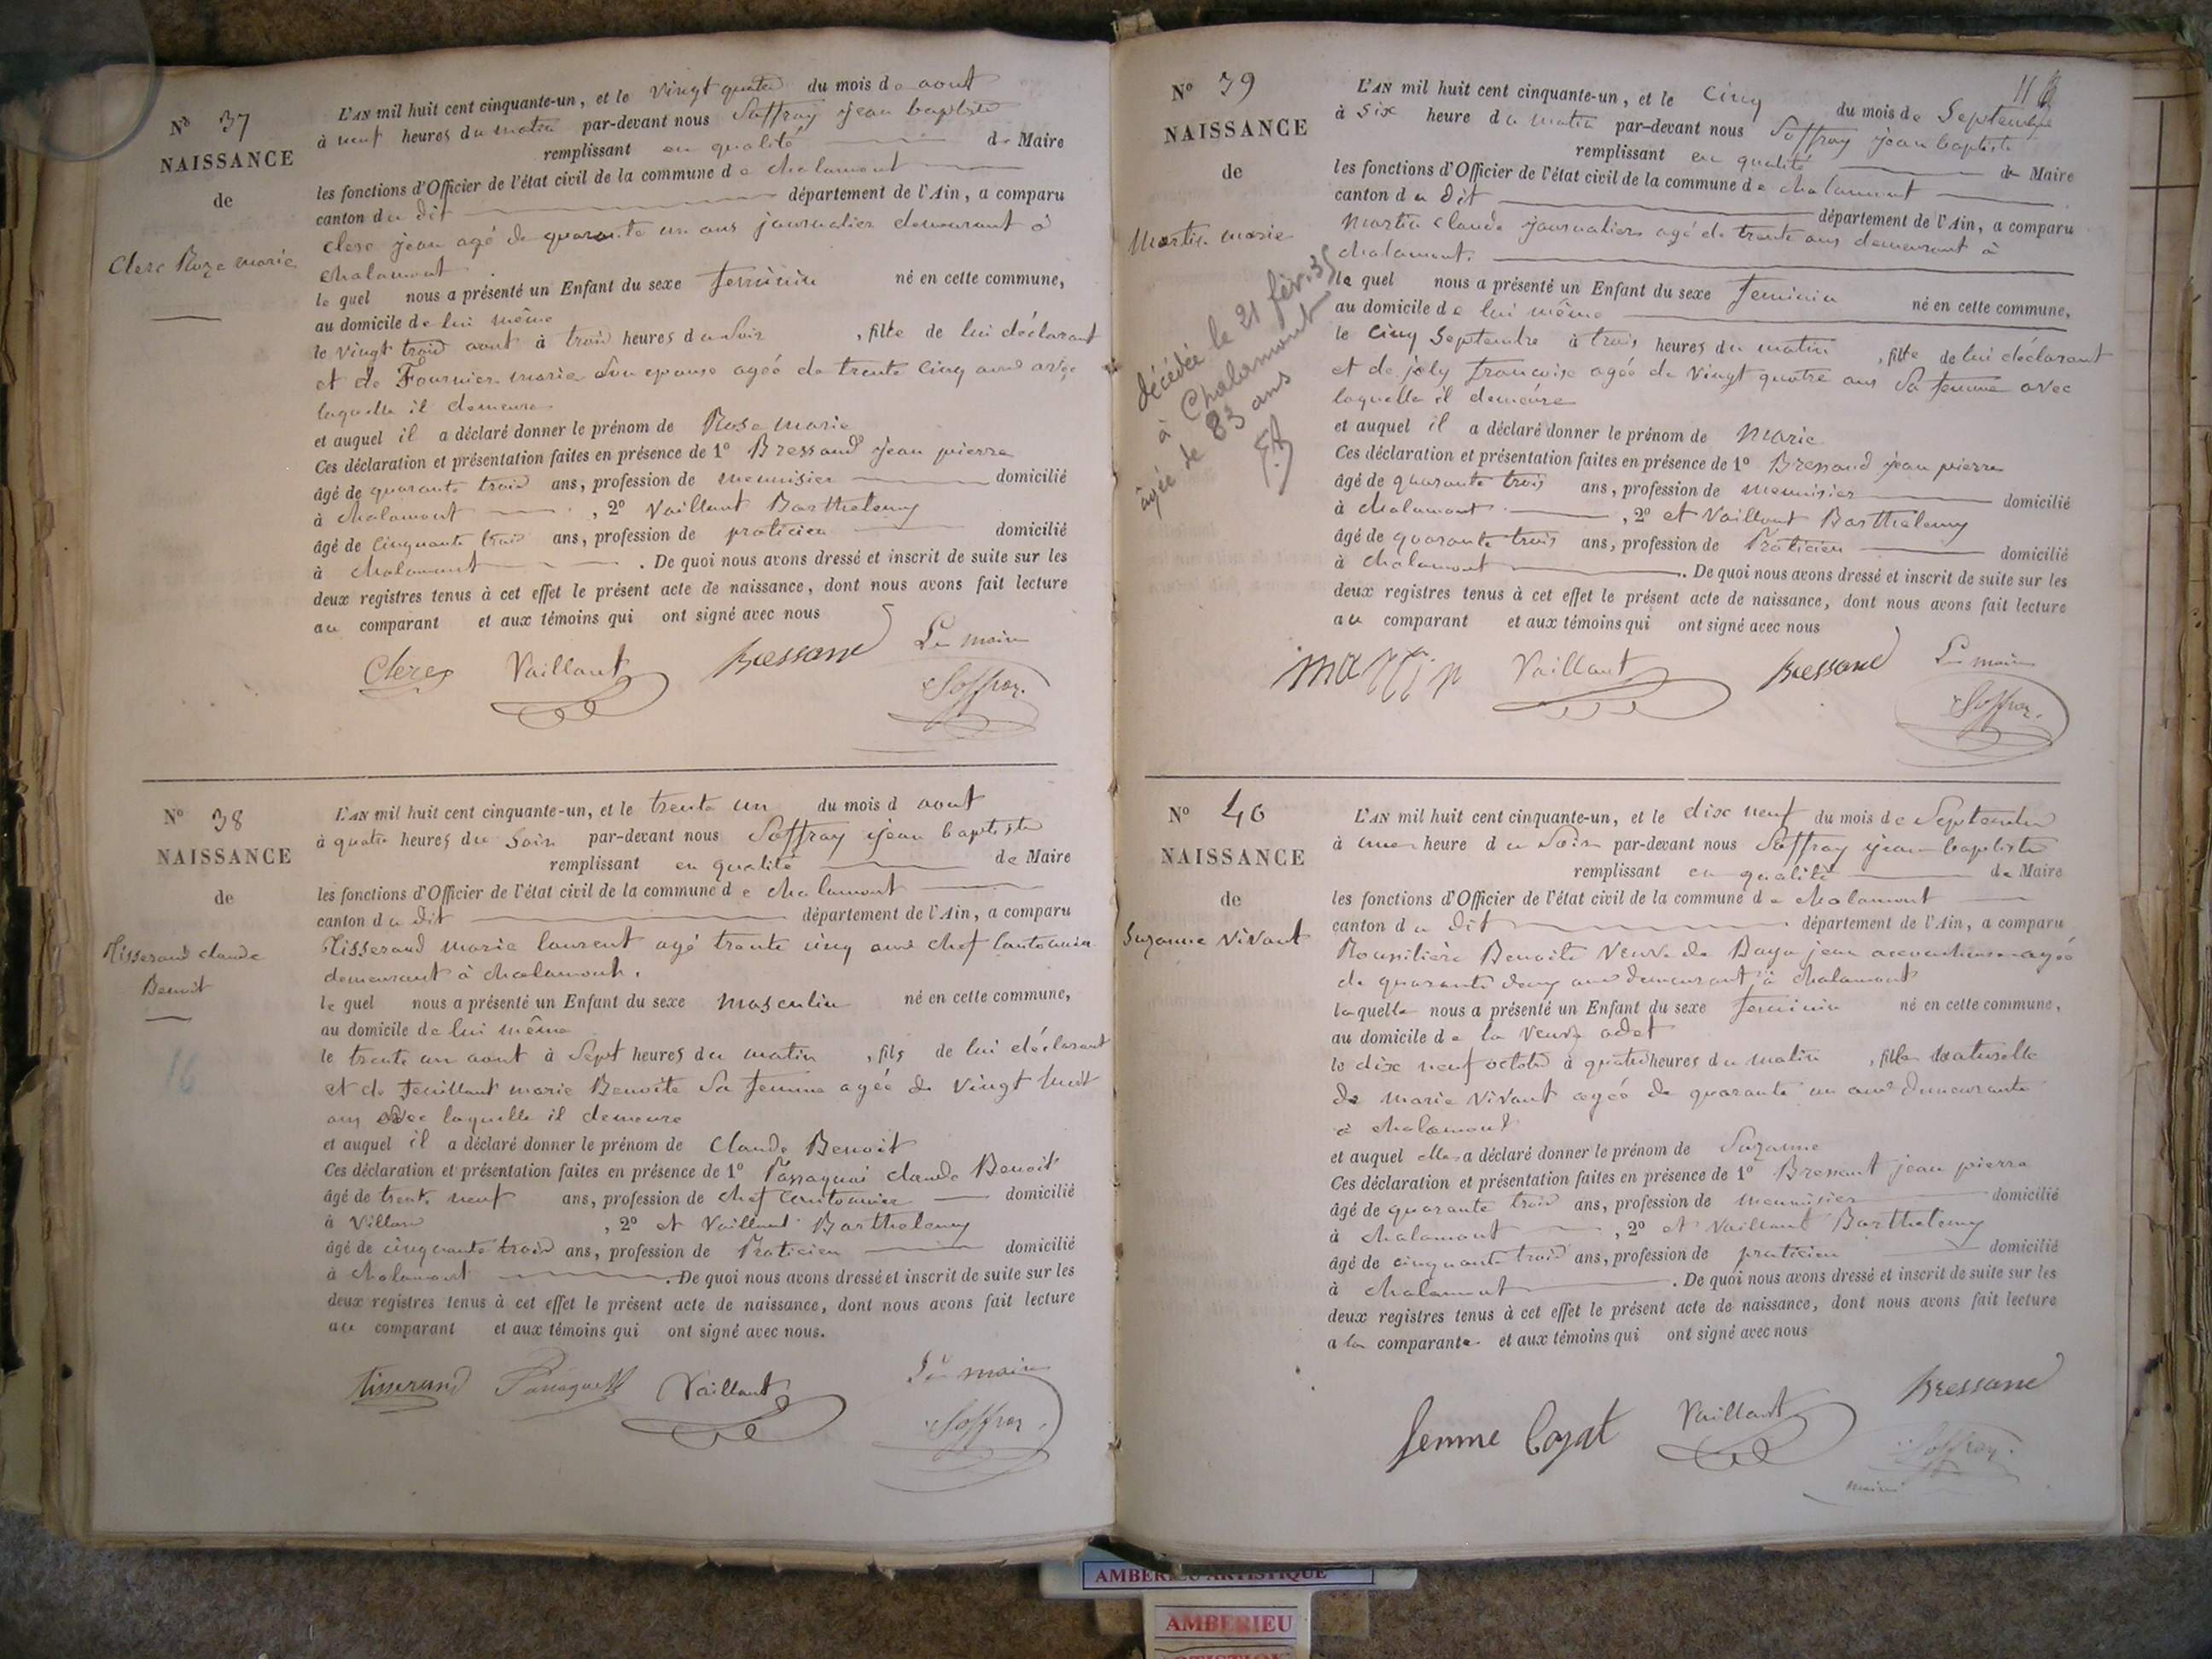 N° 37
NAISSANCE
de
Clerc Roze marie
L'AN mil huit cent cinquante-un, et le vingt quatre du mois de aout
à neuf heures du matin par-devant nous Soffray jean baptiste
remplissant en qualité de Maire
les fonctions d'Officier de l'état civil de la commune de chalamont
canton du dit département de l'Ain, a comparu
clerc jean agé de quarante un ans journalier demeurant à
chalamont
le quel nous a présenté un Enfant du sexe feminin né en cette commune,
au domicile de lui même
le vingt trois aout à trois heures du soir, fille de lui déclarant
et de Fournier marie son epouse ageé de trente cinq ans avec
laquelle il demeure
et auquel il a déclaré donner le prénom de Rose marie
Ces déclaration et présentation faites en présence de 1° Bressand jean pierre
âgé de quarante trois ans, profession de menuisier domicilié
à chalamont, 2° Vaillant Barthelemy
âgé de cinquante trois ans, profession de praticien domicilié
à chalamont. De quoi nous avons dressé et inscrit de suite sur les
deux registres tenus à cet effet le présent acte de naissance, dont nous avons fait lecture
au comparant et aux témoins qui ont signé avec nous
Clerc Vaillant Bressand Le maire
Soffray
N° 38
NAISSANCE
de
Tisserand claude
Benoit
16
L'AN mil huit cent cinquante-un, et le trente un du mois d aout
à quatre heures du soir par-devant nous Soffray jean baptiste
remplissant en qualité de Maire
les fonctions d'Officier de l'état civil de la commune de chalamont
canton du dit département de l'Ain, a comparu
Tisserand marie laurent agé trente cinq ans chef cantonnier
demeurant à chalamont.
le quel nous a présenté un Enfant du sexe masculin né en cette commune,
au domicile de lui même
le trente un aout à sept heures du matin, fils de lui déclarant
et de feuillant marie Benoite sa femme agée de vingt huit
ans avec laquelle il demeure
et auquel il a déclaré donner le prénom de Claude Benoit
Ces déclaration et présentation faites en présence de 1° claude Benoit
âgé de trente neuf ans, profession de chef cantonnier domicilié
à Villars, 2° et Vaillant Barthelemy
âgé de cinquante trois ans, profession de Praticien domicilié
à chalamont. De quoi nous avons dressé et inscrit de suite sur les
deux registres tenus à cet effet le présent acte de naissance, dont nous avons fait lecture
au comparant et aux témoins qui ont signé avec nous.
tisserand Vaillant Le maire
Soffray
N° 39
NAISSANCE
de
Martin marie
décédée le 21 fév. 35
à Chalamont
âgée de 83 ans
L'AN mil huit cent cinquante-un, et le cinq du mois de Septembre
à six heure du matin par-devant nous Soffray jean baptiste
remplissant en qualité de Maire
les fonctions d'Officier de l'état civil de la commune de chalamont
canton du dit département de l'Ain, a comparu
Martin claude journalier agé de trente ans demeurant à
chalamont.
le quel nous a présenté un Enfant du sexe feminin né en cette commune,
au domicile de lui même
le cinq Septembre à trois heures du matin, fille de lui déclarant
et de joly francoise ageé de vingt quatre ans sa femme avec
laquelle il demeure
et auquel il a déclaré donner le prénom de Marie
Ces déclaration et présentation faites en présence de 1° Bressand jean pierre
âgé de quarante trois ans, profession de menuisier domicilié
à chalamont, 2° et Vaillant Barthelemy
âgé de quarante trois ans, profession de Praticien domicilié
à chalamont. De quoi nous avons dressé et inscrit de suite sur les
deux registres tenus à cet effet le présent acte de naissance, dont nous avons fait lecture
au comparant et aux témoins qui ont signé avec nous
martin Vaillant Bressand Le maire
Soffray
N° 40
NAISSANCE
de
Suzanne Vivant
L'AN mil huit cent cinquante-un, et le dix neuf du mois de Septembre
à une heure du soir par-devant nous Soffray jean baptiste
remplissant en qualité de Maire
les fonctions d'Officier de l'état civil de la commune de chalamont
canton du dit département de l'Ain, a comparu
Benoite Veuve de jean accoucheuse ageé
de quarante deux ans demeurant à chalamont
laquelle nous a présenté un Enfant du sexe feminin né en cette commune,
au domicile de la veuve adet
le dix neuf octobre à quatre heures du matin, fille naturelle
de marie Vivant ageé de quarante un ans demeurante
à chalamont
et auquel elle a déclaré donner le prénom de Suzanne
Ces déclaration et présentation faites en présence de 1° Bressant jean pierre
âgé de quarante trois ans, profession de menuisier domicilié
à chalamont, 2° et Vaillant Barthelemy
âgé de cinquante trois ans, profession de praticien domicilié
à chalamont. De quoi nous avons dressé et inscrit de suite sur les
deux registres tenus à cet effet le présent acte de naissance, dont nous avons fait lecture
a la comparante et aux témoins qui ont signé avec nous
femme Vaillant Bressand
Soffray
maire
AMBERIEU ARTISTIQUE
AMBERIEU
ARTISTIQUE